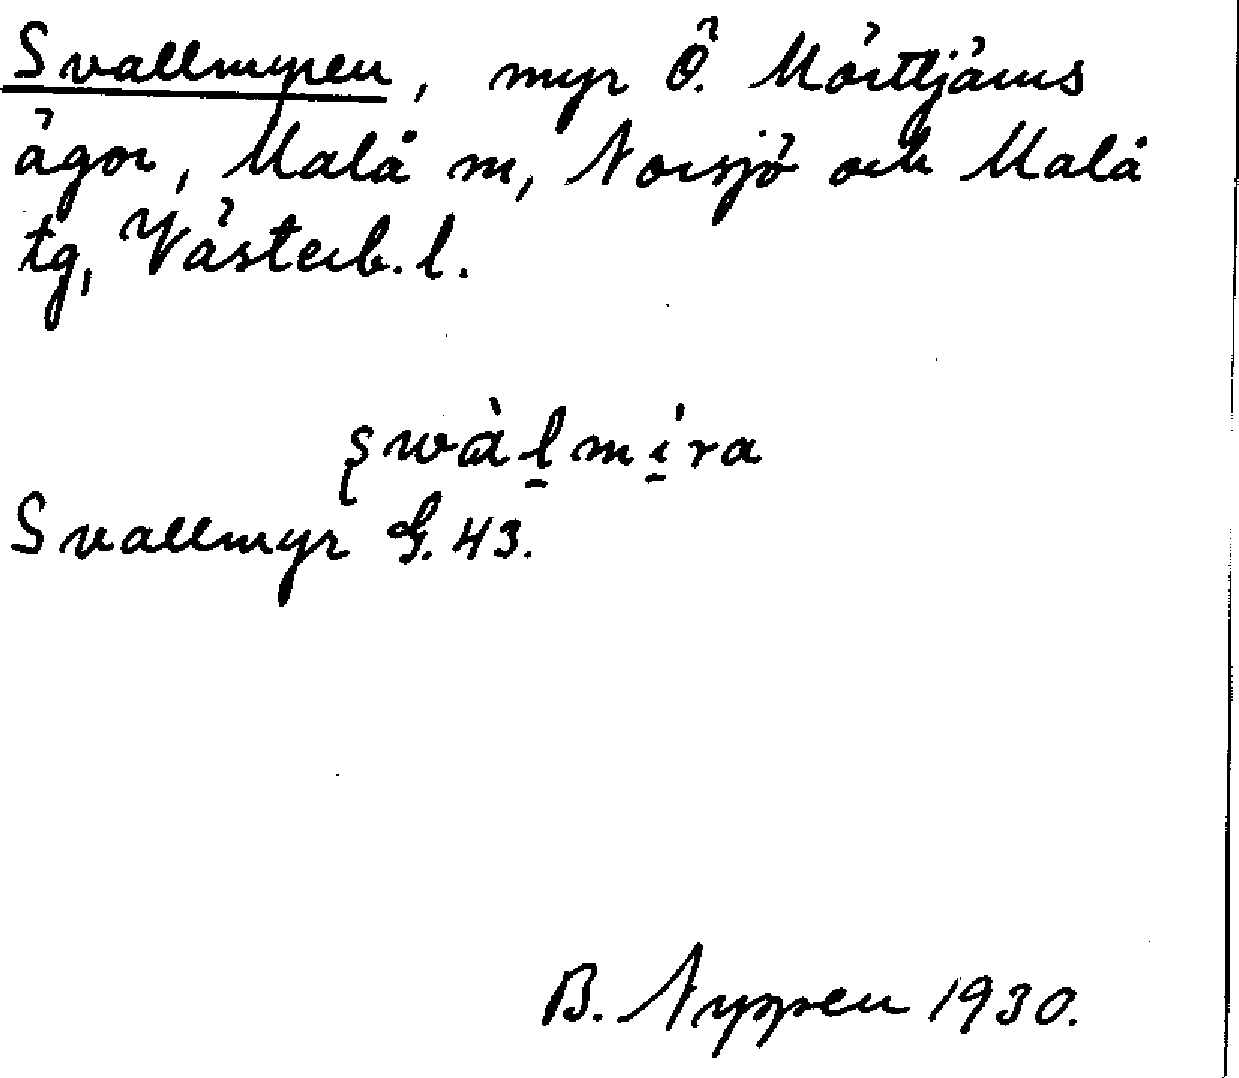 Svallmyren, myr Ö. Mörttjärns
ägor, Malå sn, Norsjö och Malå
tg, Västerb. l.
ʂwàl̠mí̠ra
Svallmyr G. 43.
B. Nyppen 1930.